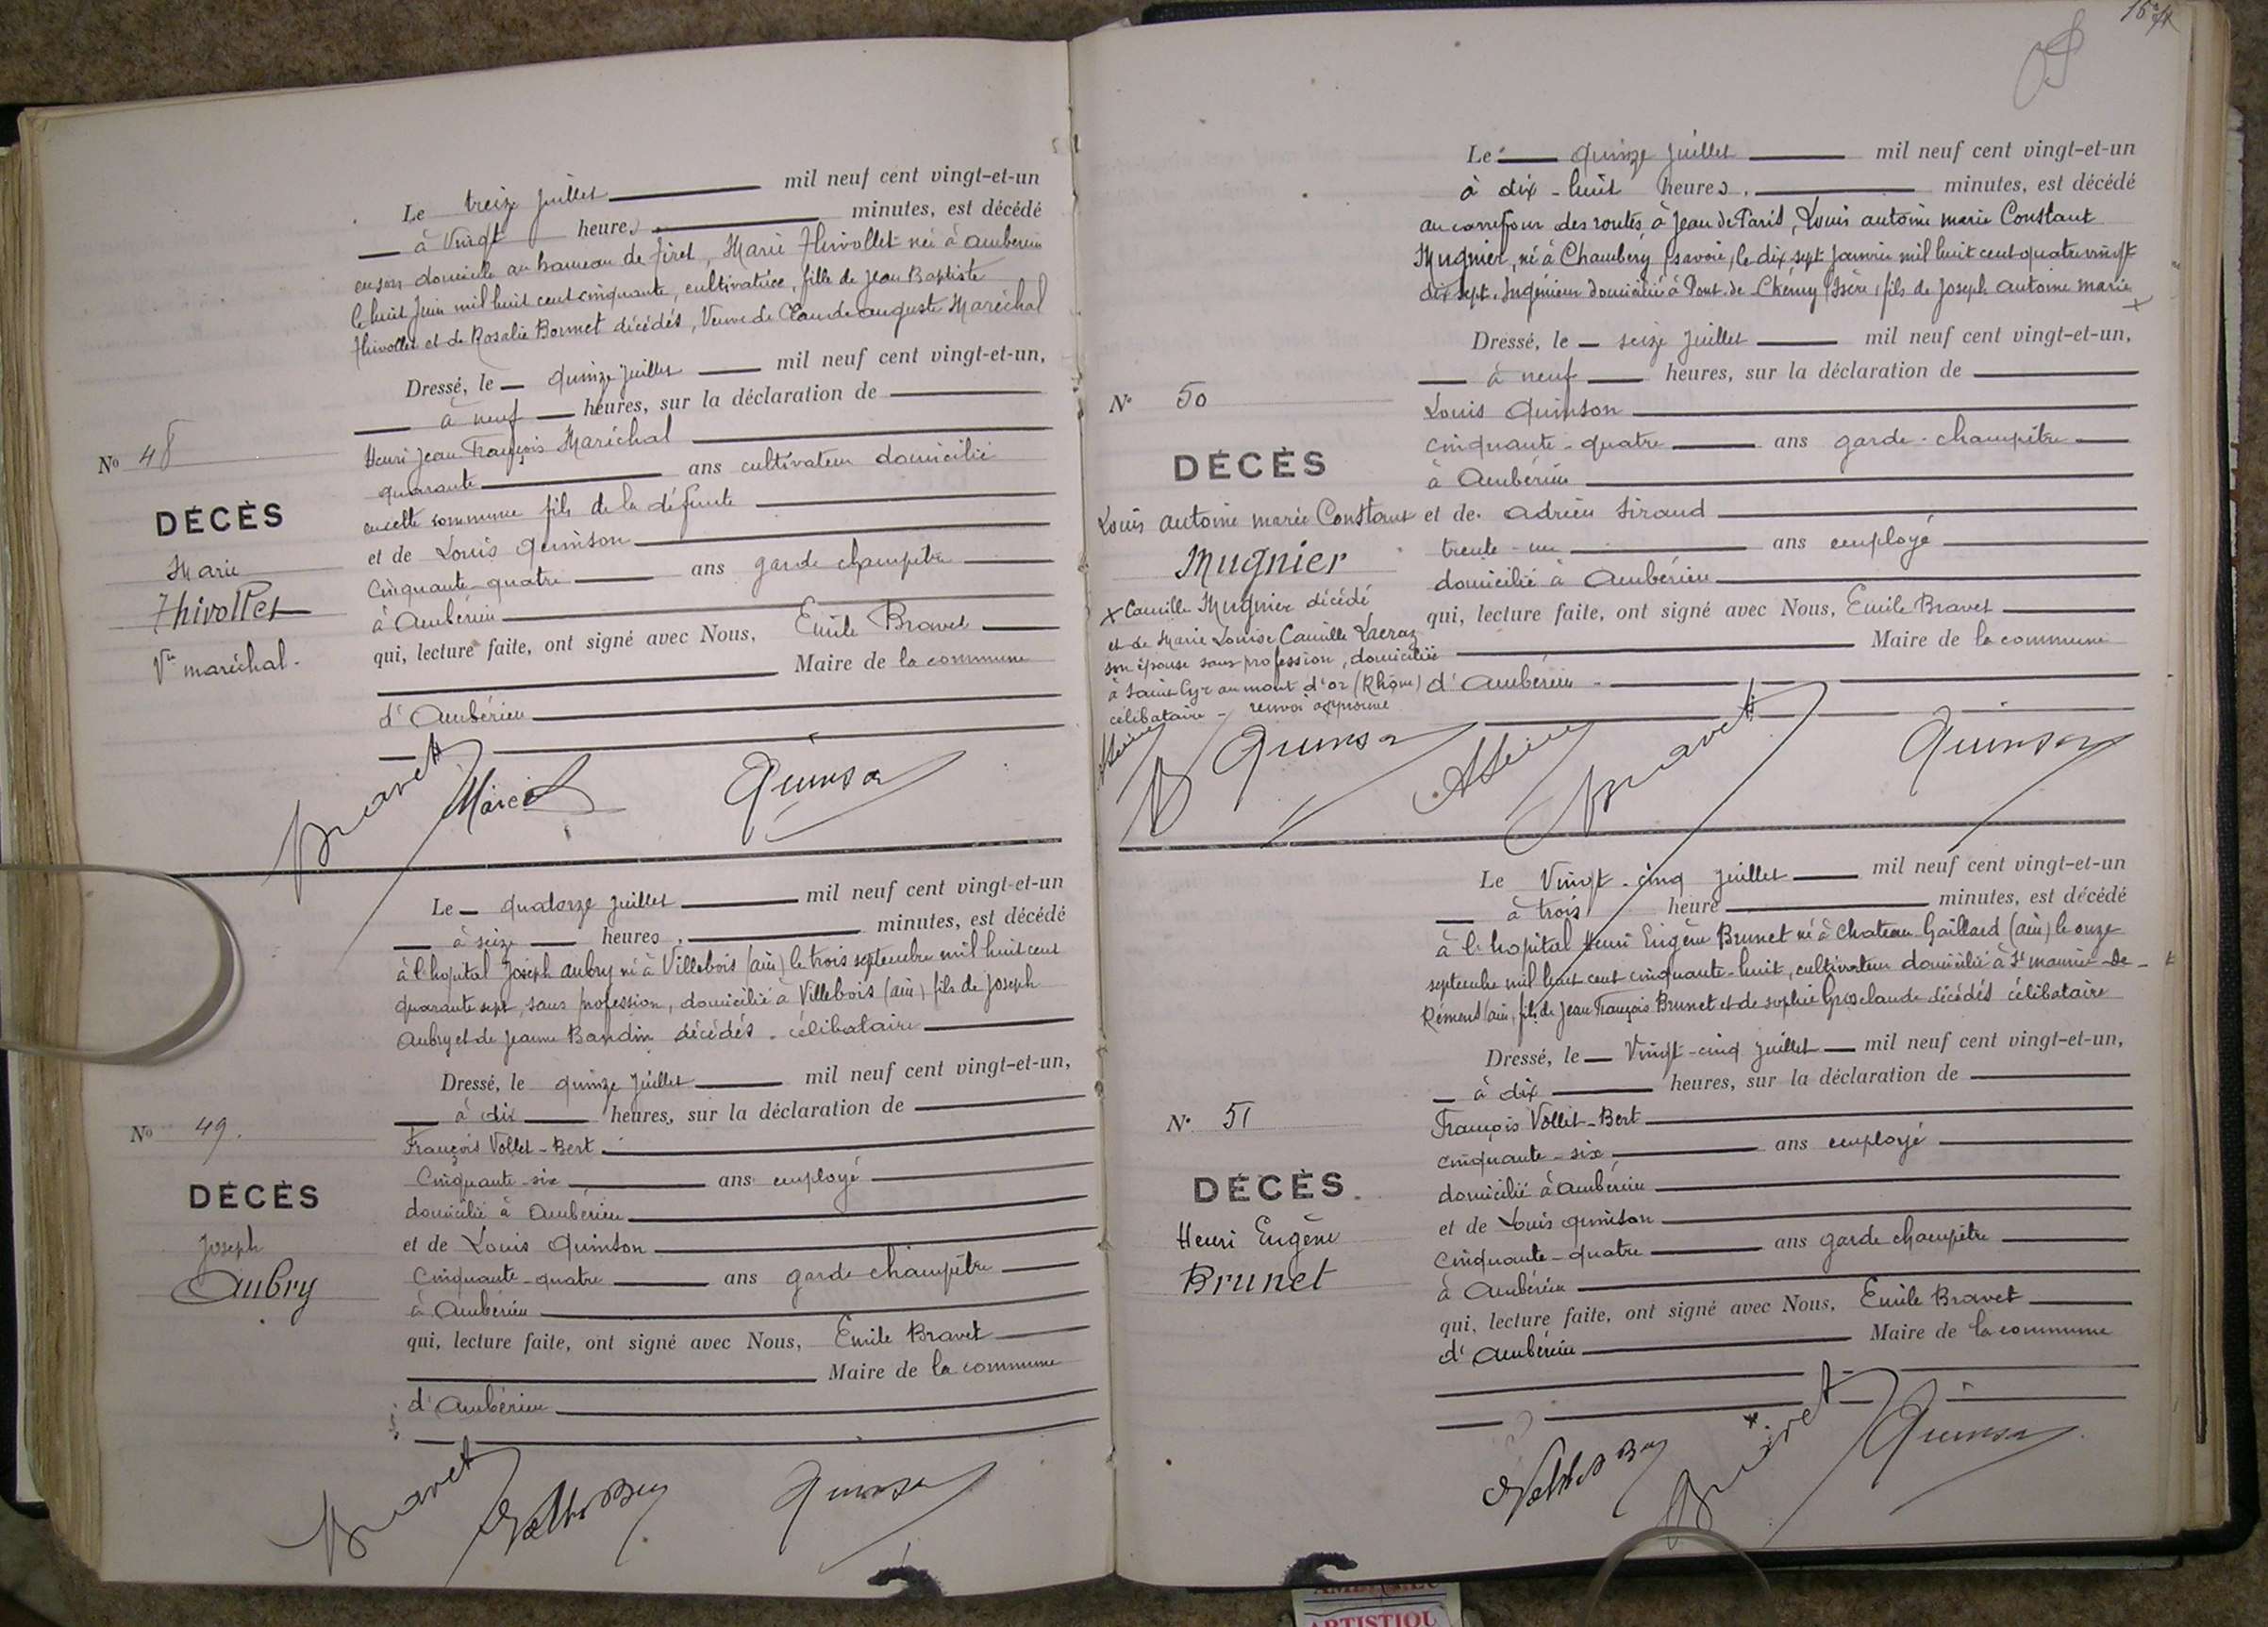 Le treize juillet mil neuf cent vingt-et-un
à vingt heures, minutes, est décédé
en son domicile au hameau de Tiret, Marie Thivollet née à Ambérieu
le huit Juin mil huit cent cinquante, cultivatrice, fille de Jean Baptiste
Thivollet et de Rosalie Bonnet décédés, Veuve de Claude auguste Maréchal
Dressé, le quinze juillet mil neuf cent vingt-et-un,
à neuf heures, sur la déclaration de
Henri Jean François Maréchal
quarante ans cultivateur domicilié
en cette commune fils de la défunte
et de Louis Quinson
Cinquante-quatre ans garde champêtre
à Ambérieu
qui, lecture faite, ont signé avec Nous, Emile Bravet
Maire de la commune
d'Ambérieu
No 48
DÉCÈS
Marie
Thivollet
Vve maréchal.
Bravet Quinson
Le quatorze juillet mil neuf cent vingt-et-un
à seize heures, minutes, est décédé
à l'hopital Joseph Aubry né à Villebois (ain) le trois septembre mil huit cent
quarante sept, sans profession, domicilié à Villebois (ain) fils de Joseph
Aubry et de Jeanne Bandin décédés. célibataire
Dressé, le quinze juillet mil neuf cent vingt-et-un,
à dix heures, sur la déclaration de
François Vollet-Bert
Cinquante-six ans employé
domicilié à Ambérieu
et de Louis Quinson
Cinquante-quatre ans garde champêtre
à Ambérieu
qui, lecture faite, ont signé avec Nous, Emile Bravet
Maire de la commune
d'Ambérieu
No 49.
DÉCÈS
Joseph
Aubry
Bravet Quinson
Le quinze juillet mil neuf cent vingt-et-un
à dix-huit heures, minutes, est décédé
au carrefour des routes, à Jean de Paris, Louis antoine marie Constant
Mugnier, né à Chambéry (savoie, le dix sept Janvier mil huit cent quatre vingt
dix sept. Ingénieur domicilié à Pont-de-Chéruy (Isère, fils de Joseph antoine marie x
Dressé, le seize juillet mil neuf cent vingt-et-un,
à neuf heures, sur la déclaration de
Louis Quinson
cinquante-quatre ans garde-champêtre
à Ambérieu
et de Adrien Siraud
trente-un ans employé
domicilié à Ambérieu
qui, lecture faite, ont signé avec Nous, Emile Bravet
Maire de la commune
d'Ambérieu
No 50
DÉCÈS
Louis antoine marie Constant
Mugnier
x Camille Mugnier décédé
et de Marie Louise Camille Lacraz
son épouse sans profession, domiciliée
à Saint Cyr au mont d'or (Rhône)
célibataire - renvoi approuvé
Quinson Bravet Quinson
Le vingt-cinq juillet mil neuf cent vingt-et-un
à trois heure minutes, est décédé
à l'hopital Henri Eugène Brunet né à Chateau Gaillard (ain) le onze
septembre mil huit cent cinquante-huit, cultivateur domicilié à St maurice-de-
Rémens (ain, fils de Jean François Brunet et de sophie Grosclaude décédés célibataire
Dressé, le Vingt-cinq juillet mil neuf cent vingt-et-un,
à dix heures, sur la déclaration de
François Vollet-Bert
cinquante-six ans employé
domicilié à Ambérieu
et de Louis Quinson
Cinquante-quatre ans garde champêtre
à Ambérieu
qui, lecture faite, ont signé avec Nous, Emile Bravet
Maire de la commune
d'Ambérieu
No 51
DÉCÈS.
Henri Eugène
Brunet
Bravet Quinson
ARTISTIQU